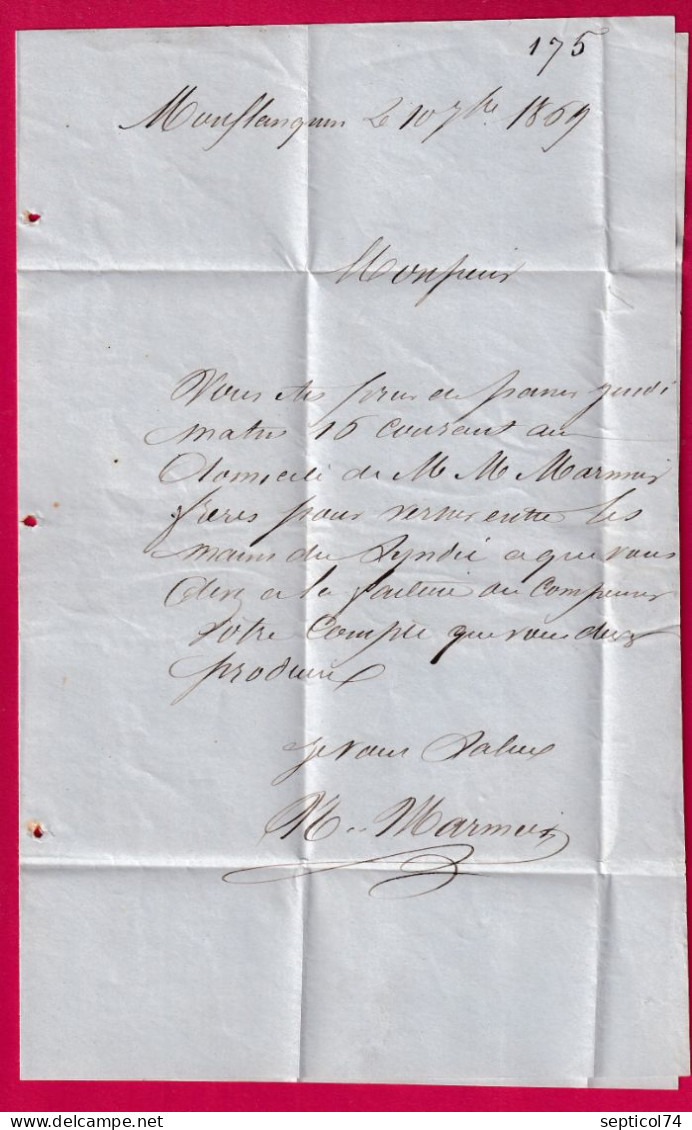 175
Monflanquin Le 10 7bre 1869
Monsieur
Vous etes prier de passer jeudi
matin 16 courant au
Domicile de M M Marmier
freres pour verser entre les
mains du Syndic ce que vous
devez a la faillite ou compenser
votre Compte que vous devez
produire
Je vous Salue
Marmier
septicol74
DELCAMPE
septicol74